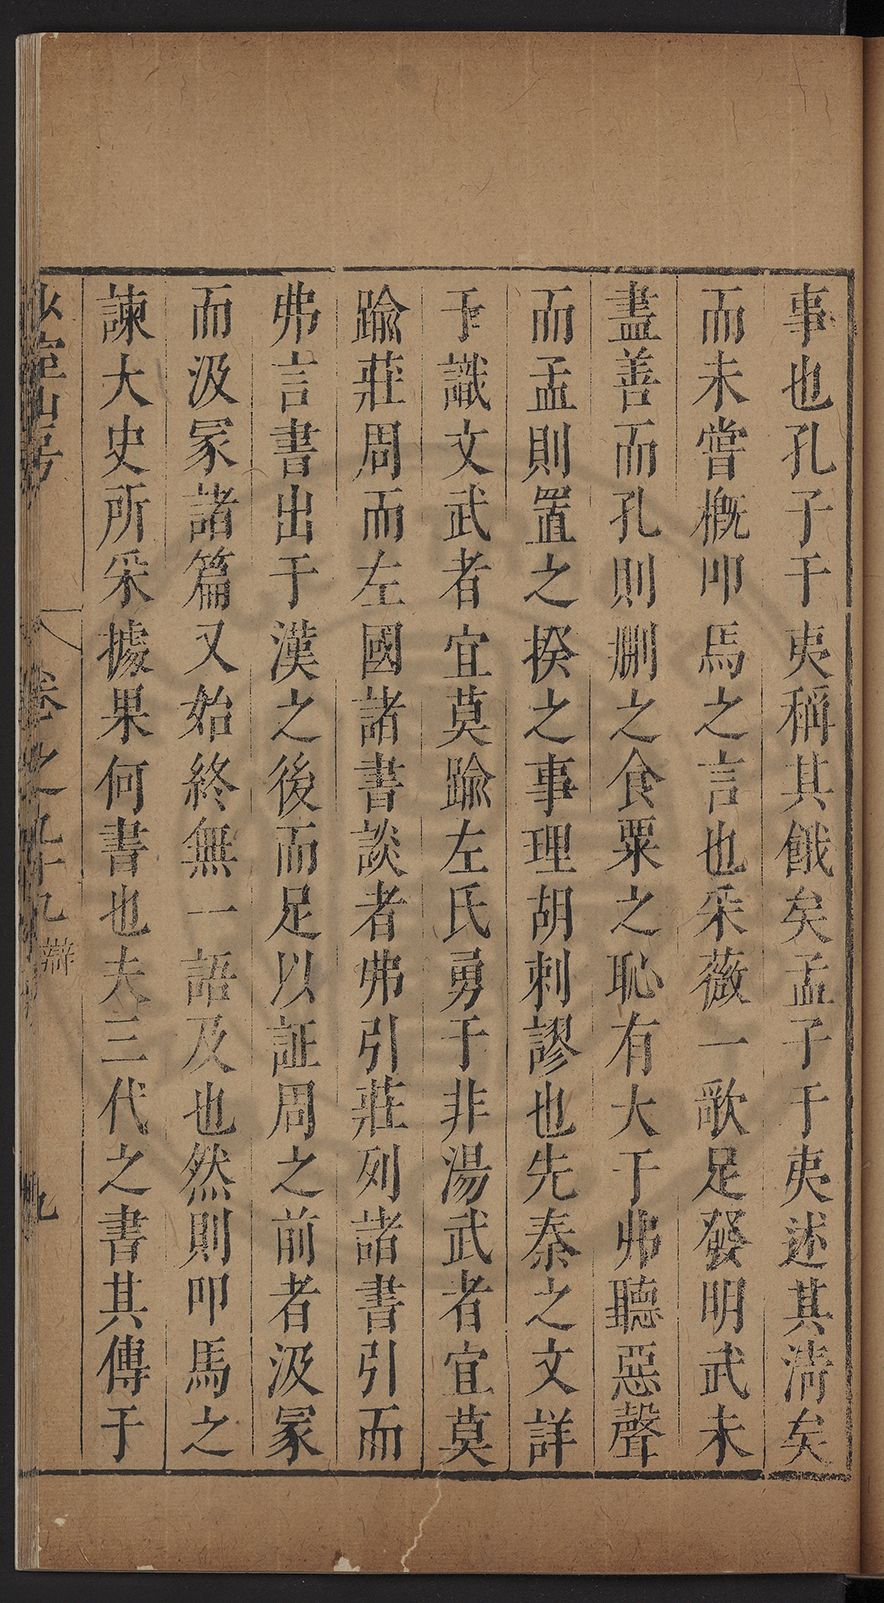 事也孔子于夷稱其餓矣孟子于夷述其淸矣
而未嘗槪叩馬之言也采薇一歌足發明武未
盡善而孔則刪之食粟之恥有大于弗聽惡聲
而孟則置之揆之事理胡刺謬也先秦之文詳
于識文武者宜莫踰左氏勇于非湯武者宜莫
踰莊周而左國諸書談者弗引莊列諸書引而
弗言書出于漢之後而足以証周之前者汲冡
而汲冡諸篇又始終無一語及也然則叩馬之
諫大史所采據果何書也夫三代之書其傳于
少室山房 卷之九十九 辯 九